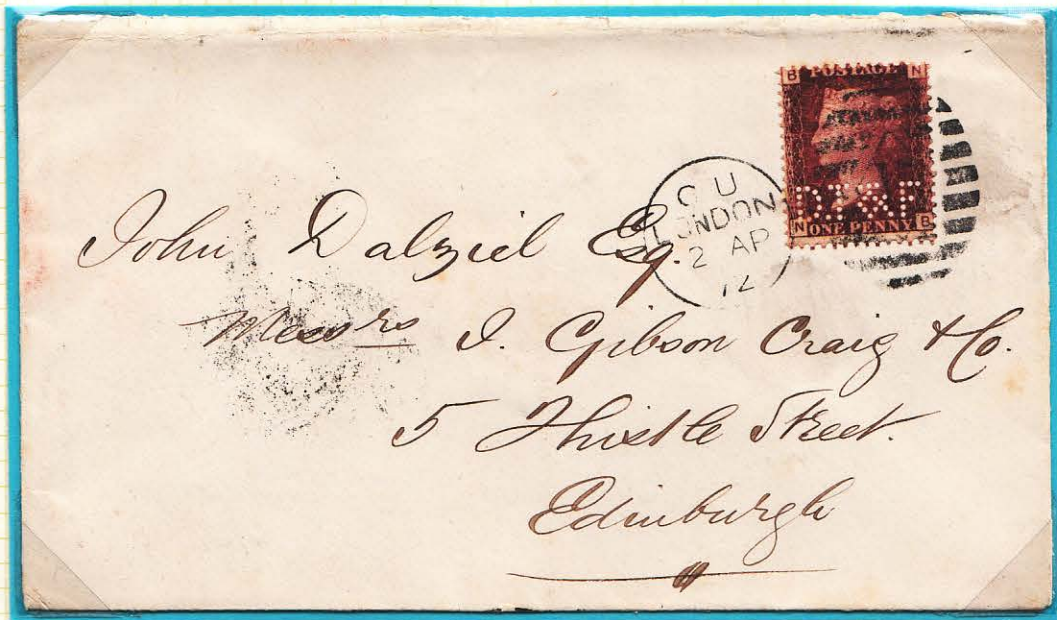 B POSTAGE N
N ONE PENNY B
LONDON
2 AP
72
John Dalziel Esq.
Messrs J. Gibson Craig & Co.
5 Thistle Street.
Edinburgh